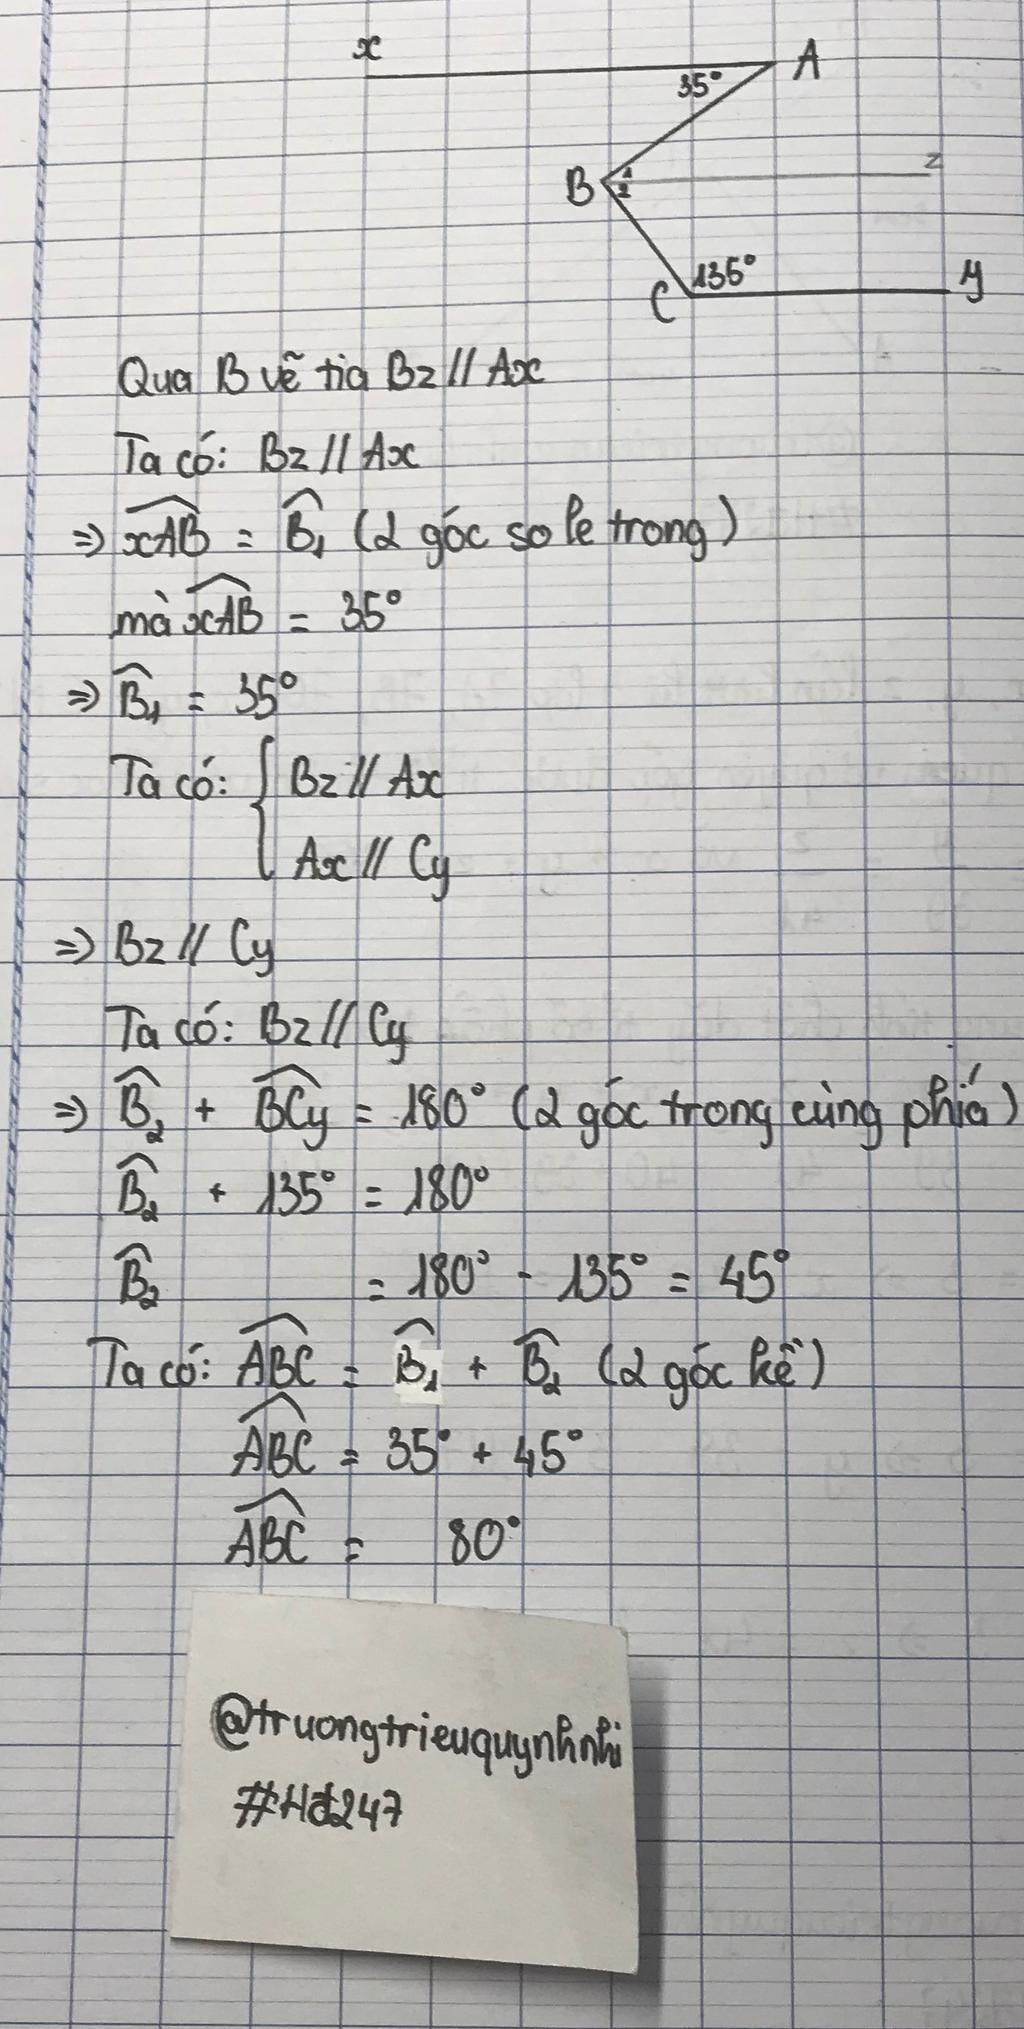 x
A
35°
B
1
2
z
C
135°
y
Qua B vẽ tia Bz // Ax
Ta có: Bz // Ax
=> xAB = B₁ (2 góc so le trong)
mà xAB = 35°
=> B₁ = 35°
Ta có: { Bz // Ax
Ax // Cy
=> Bz // Cy
Ta có: Bz // Cy
=> B₂ + BCy = 180° (2 góc trong cùng phiá)
B₂ + 135° = 180°
B₂ = 180° - 135° = 45°
Ta có: ABC = B₁ + B₂ (2 góc kề)
ABC = 35° + 45°
ABC = 80°
@truongtrieuquynhnhi
#Hđ247